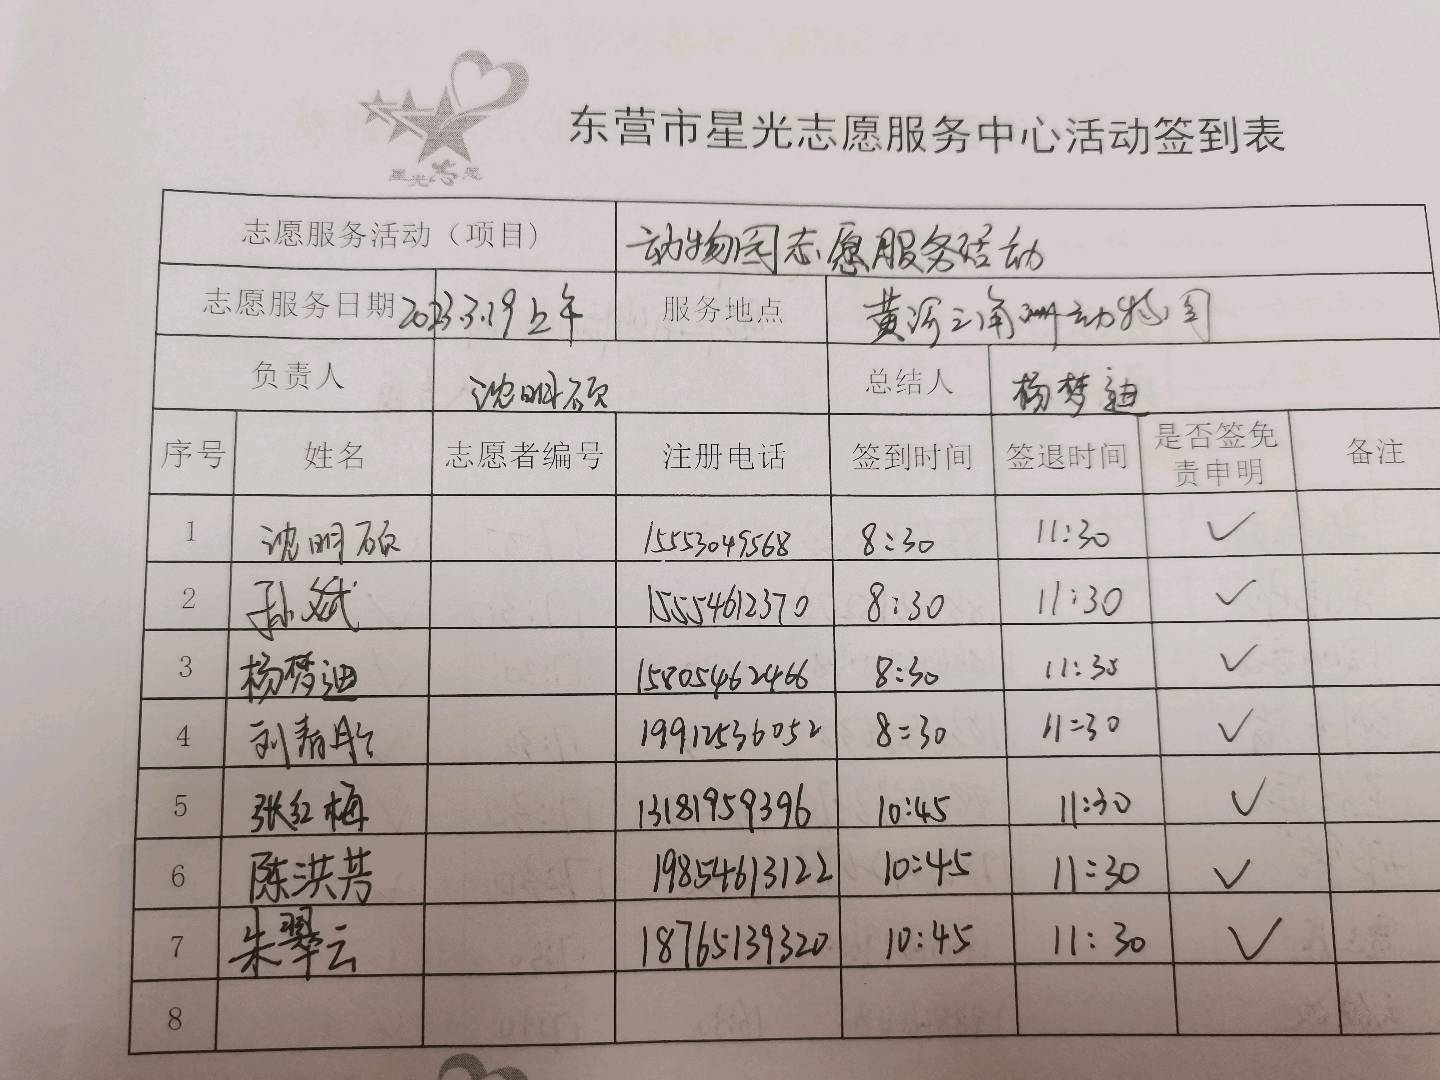 星光志愿
东营市星光志愿服务中心活动签到表
志愿服务活动（项目） 动物园志愿服务活动
志愿服务日期 2023.3.19上午 服务地点 黄河三角洲动物园
负责人 沈明硕 总结人 杨梦迪
序号 姓名 志愿者编号 注册电话 签到时间 签退时间 是否签免责申明 备注
1 沈明硕 15553049568 8:30 11:30 ✓
2 孙斌 15554612370 8:30 11:30 ✓
3 杨梦迪 15805462466 8:30 11:30 ✓
4 刘 19912536052 8:30 11:30 ✓
5 张红梅 13181959396 10:45 11:30 ✓
6 陈洪芳 19854613122 10:45 11:30 ✓
7 朱翠云 18765139320 10:45 11:30 ✓
8